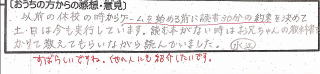 【おうちの方からの感想・意見】
以前の休校の時からゲームを始める前に読書30分の約束を決めて
土・日は今も実行しています。読む本がない時はお兄ちゃんの教科書を
かりて教えてもらいながら読んでいました。
すばらしいですね。他の人にも紹介したいです。